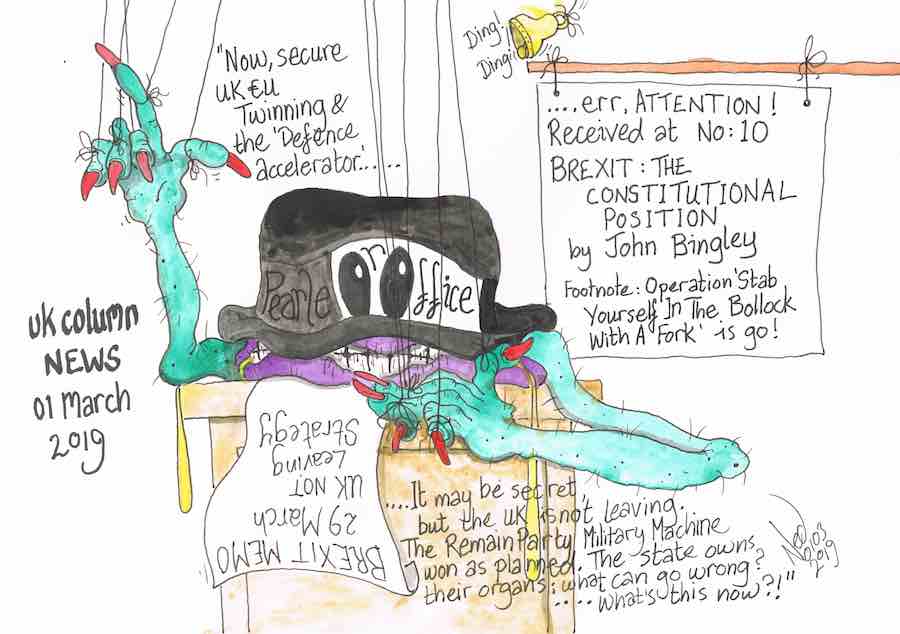 "Now, secure
UK€U
Twinning &
the 'Defence
accelerator'.....
Ding!
Ding!!
....err, ATTENTION!
Received at No:10
BREXIT: THE
CONSTITUTIONAL
POSITION
by John Bingley
Footnote: Operation 'Stab
Yourself In The Bollock
With A Fork' is go!
Pearle Or Office
UK column
NEWS
01 March
2019
BREXIT MEMO
29 March
UK NOT
Leaving
Strategy
....It may be secret,
but the UK is not leaving.
The Remain Party Military Machine
won as planned. The State owns
their organs: what can go wrong?
.....what's this now?!"
2019